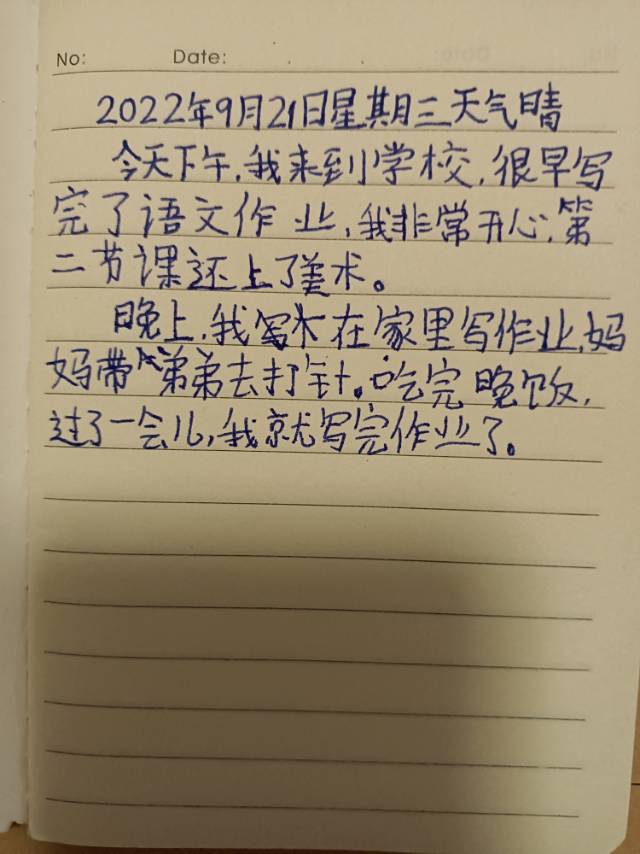 No: Date:
2022年9月21日星期三天气晴
今天下午,我来到学校,很早写
完了语文作业,我非常开心,第
二节课还上了美术。
晚上,我在家里写作业,妈
妈带弟弟去打针。吃完晚饭,
过了一会儿,我就写完作业了。